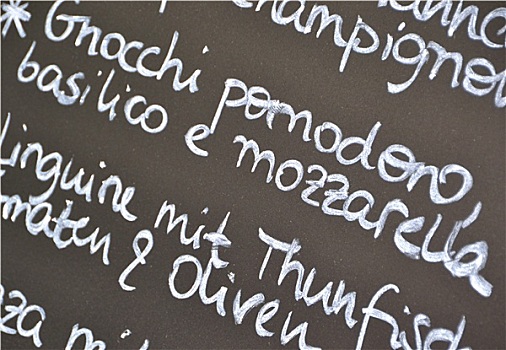 Champignon
* Gnocchi pomodoro,
basilico e mozzarella
Linguine mit Thunfisch
Tomaten & Oliven